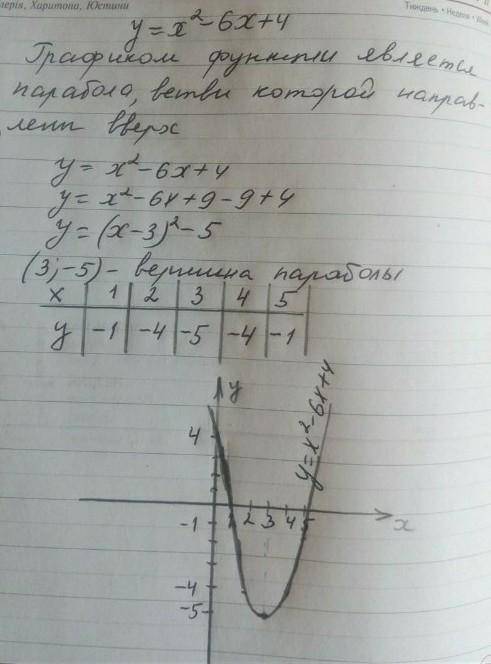 лерія, Харитопа, Юстини
Тиждень • Неделя •
y = x² - 6x + 4
Графиком функции является
парабола, ветви которой направ-
лены вверх
y = x² - 6x + 4
y = x² - 6x + 9 - 9 + 4
y = (x - 3)² - 5
(3; -5) - вершина параболы
x | 1 | 2 | 3 | 4 | 5
y | -1 | -4 | -5 | -4 | -1
y
y = x² - 6x + 4
4
1 2 3 4 5
x
-1
-4
-5